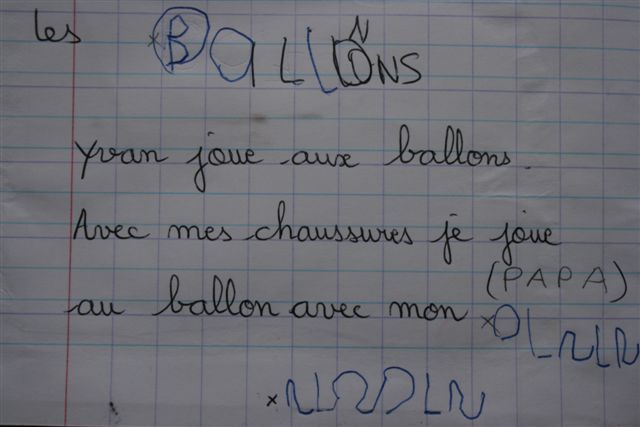 les BALLONS
Yvan joue aux ballons.
Avec mes chaussures je joue
(PAPA)
au ballon avec mon